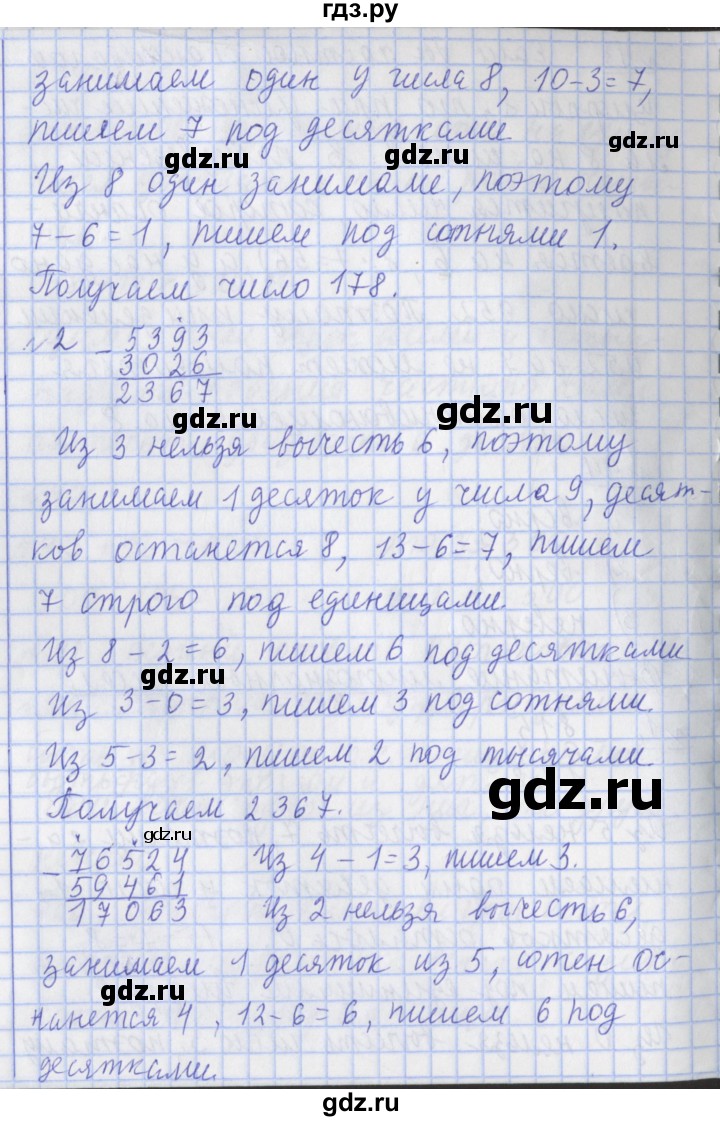 гдз.ру
занимаем один у числа 8, 10-3=7,
пишем 7 под десятками
gdz.ru gdz.ru
Из 8 один занимаме, поэтому
7-6=1, пишем под сотнями 1.
Получаем число 178.
№2 - 5393
3026
2367
gdz.ru gdz.ru
Из 3 нельзя вычесть 6, поэтому
занимаем 1 десяток у числа 9, десят-
ков останется 8, 13-6=7, пишем
7 строго под единицами.
Из 8-2=6, пишем 6 под десятками
gdz.ru
Из 3-0=3, пишем 3 под сотнями.
Из 5-3=2, пишем 2 под тысячами.
gdz.ru
Получаем 2367.
gdz.ru
- 76524 Из 4-1=3, пишем 3.
59461
17063 Из 2 нельзя вычесть 6,
занимаем 1 десяток из 5, сотен ос-
gdz.ru
танется 4, 12-6=6, пишем 6 под
десятками.
gdz.ru